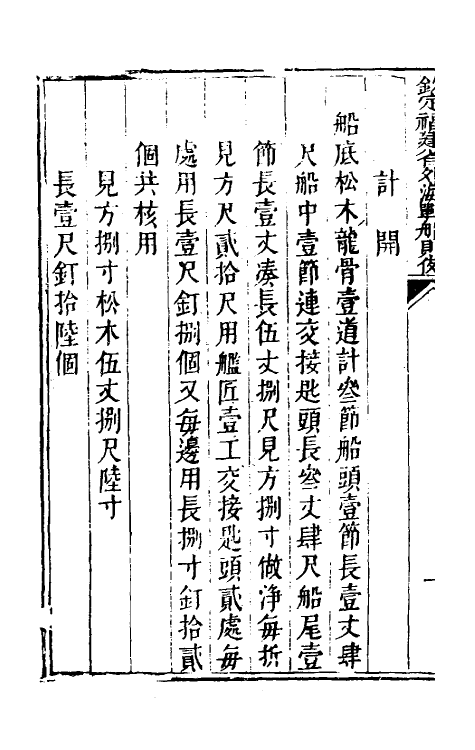 欽定福建省外海戰船則例
計開
船底松木龍骨壹道計叁節船頭壹節長壹丈肆
尺船中壹節連交接匙頭長叁丈肆尺船尾壹
節長壹丈湊長伍丈捌尺見方捌寸做淨每折
見方尺貳拾尺用艦匠壹工交接匙頭貳處每
處用長壹尺釘捌個又每邊用長捌寸釘拾貳
個共核用
見方捌寸松木伍丈捌尺陸寸
長壹尺釘拾陸個